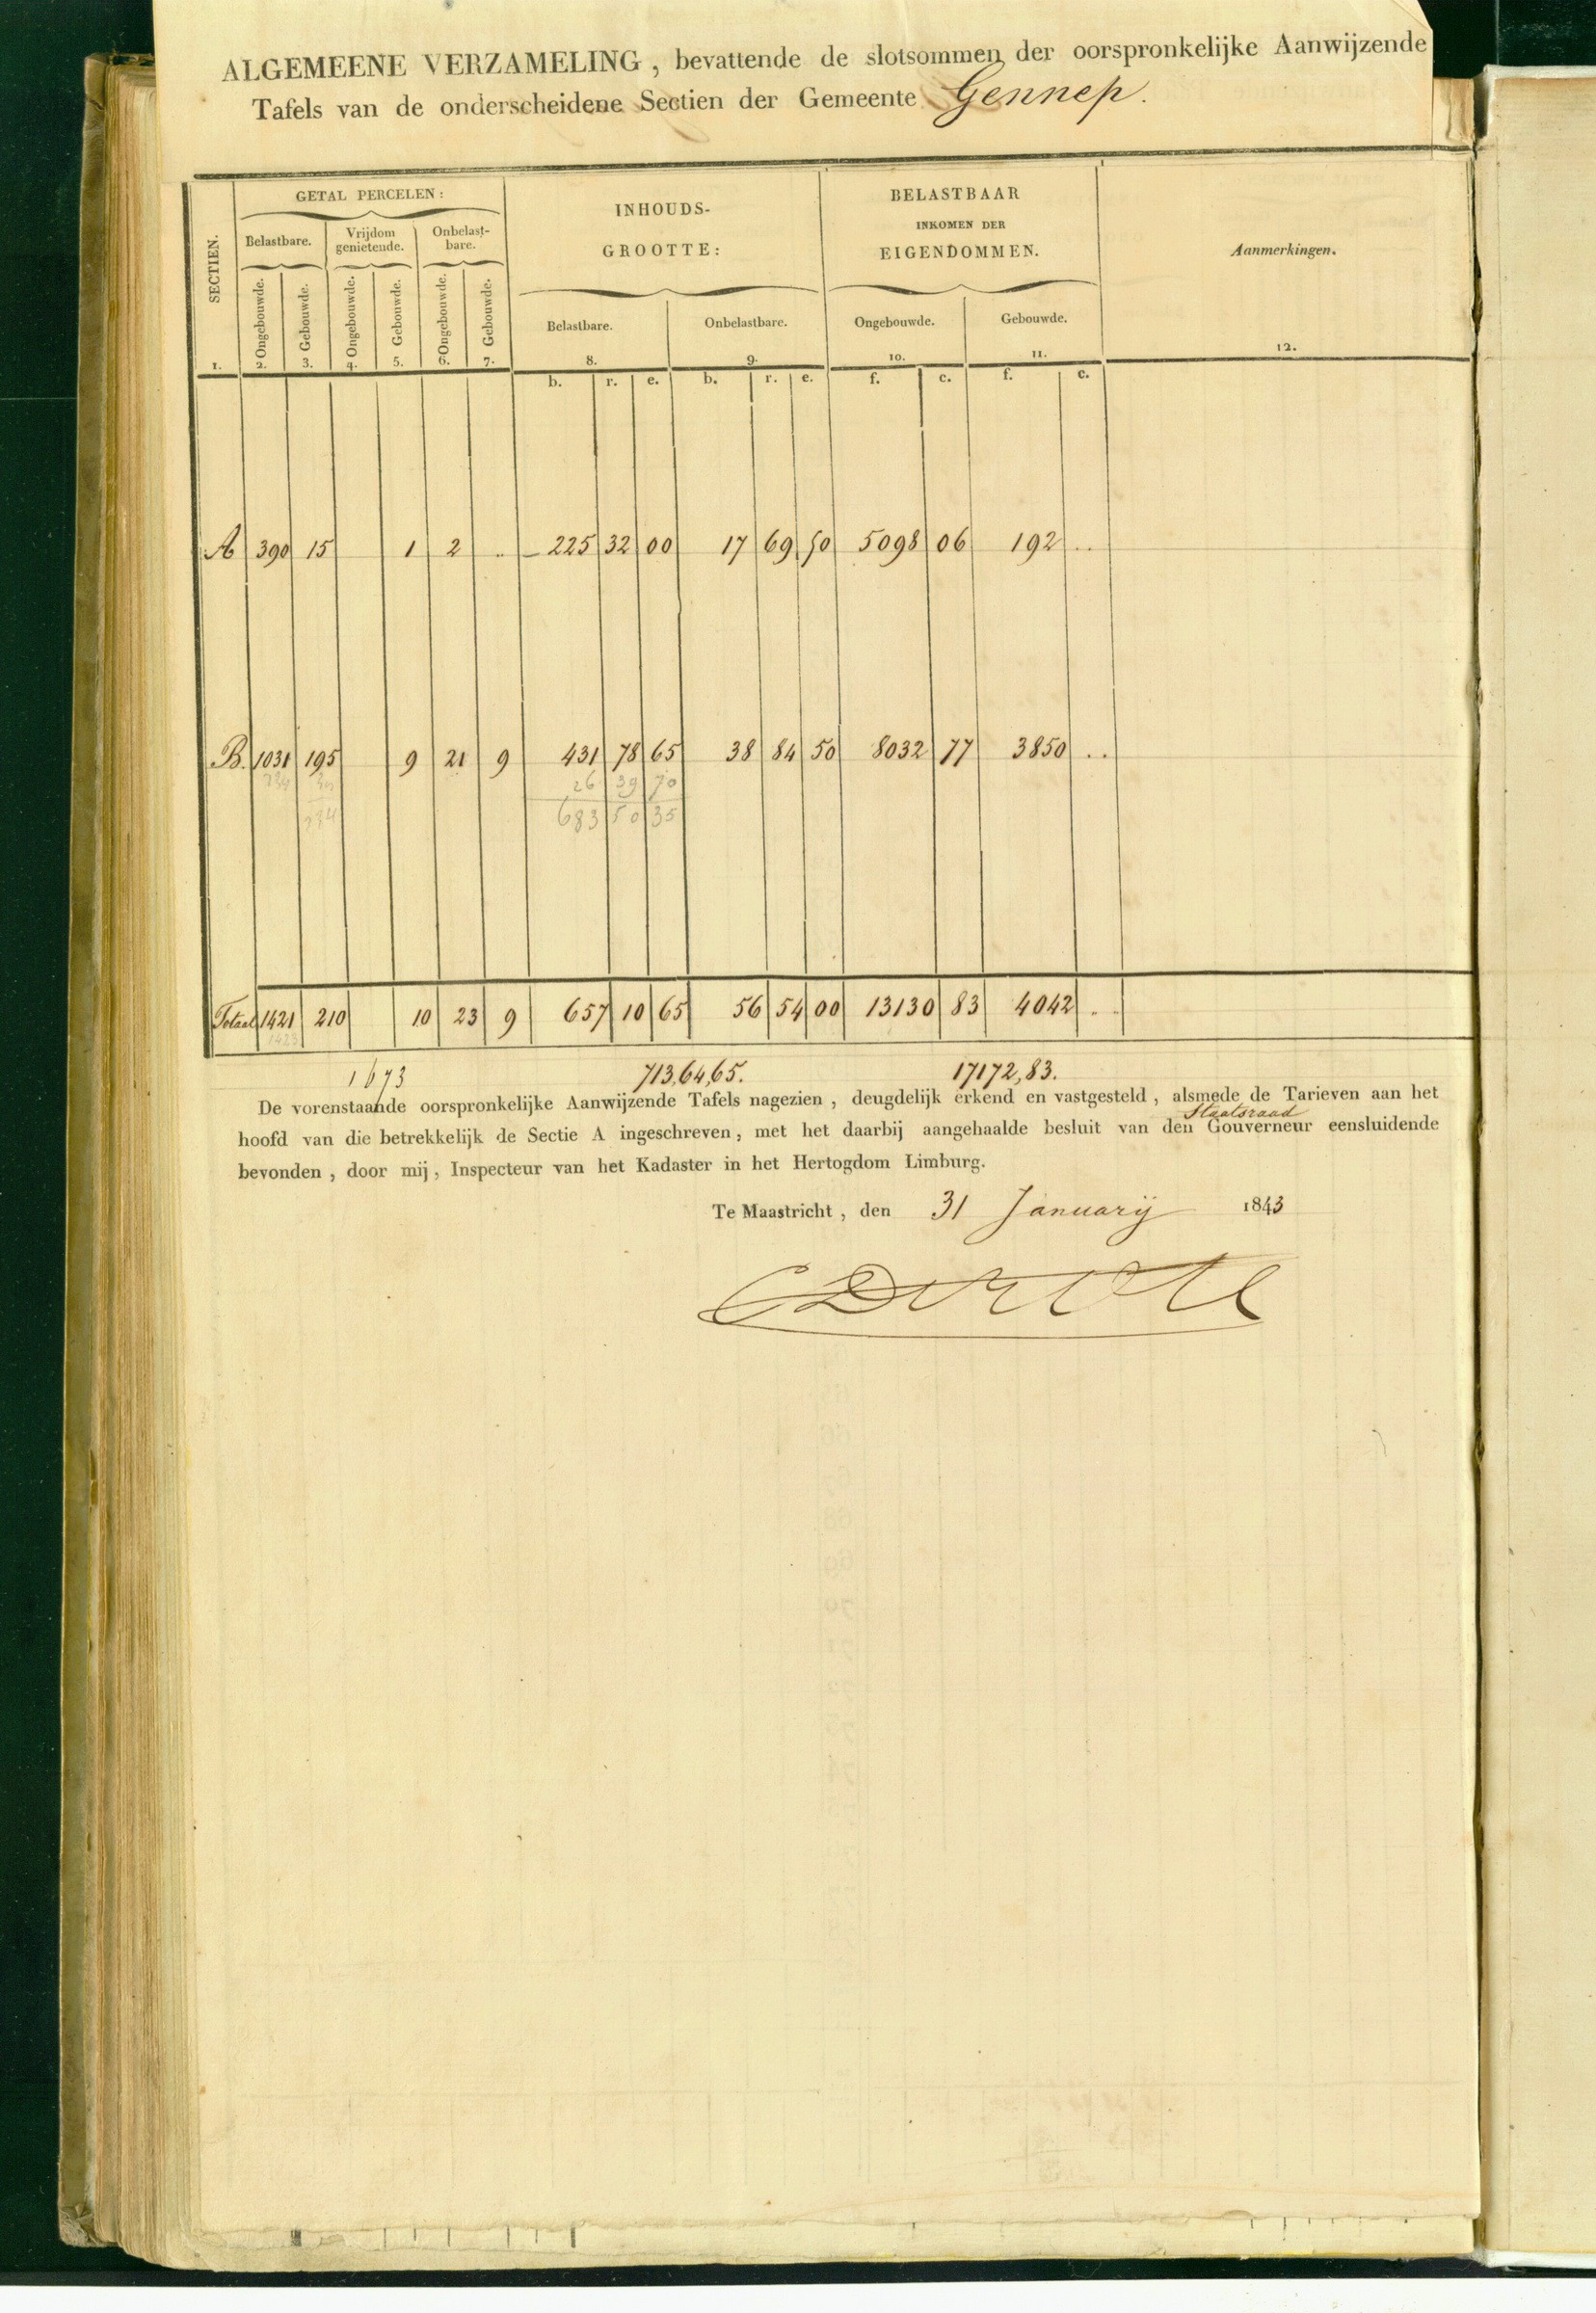 ALGEMEENE VERZAMELING, bevattende de slotsommen der oorspronkelijke Aanwijzende
Tafels van de onderscheidene Sectien der Gemeente Gennep.
SECTIEN. GETAL PERCELEN: INHOUDS-GROOTTE: BELASTBAAR INKOMEN DER EIGENDOMMEN. Aanmerkingen.
Belastbare. Vrijdom genietende. Onbelast-bare.
Ongebouwde. Gebouwde. Ongebouwde. Gebouwde. Ongebouwde. Gebouwde. Belastbare. Onbelastbare. Ongebouwde. Gebouwde.
1. 2. 3. 4. 5. 6. 7. 8. 9. 10. 11. 12.
b. r. e. b. r. e. f. c. f. c.
A 390 15 1 2 .. 225 32 00 17 69 50 5098 06 192 ..
B. 1031 195 9 21 9 431 78 65 38 84 50 8032 77 3850 ..
26 39 70
683 50 35
Totaal 1421 210 10 23 9 657 10 65 56 54 00 13130 83 4042 ..
1673 713,64,65. 17172,83.
De vorenstaande oorspronkelijke Aanwijzende Tafels nagezien, deugdelijk erkend en vastgesteld, alsmede de Tarieven aan het
Staatsraad
hoofd van die betrekkelijk de Sectie A ingeschreven, met het daarbij aangehaalde besluit van den Gouverneur eensluidende
bevonden, door mij, Inspecteur van het Kadaster in het Hertogdom Limburg.
Te Maastricht, den 31 Januarij 1843